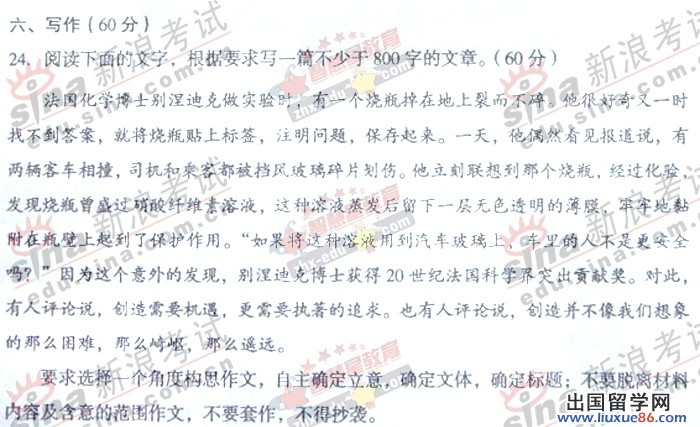 六、写作（60分）
24．阅读下面的文字，根据要求写一篇不少于800字的文章。（60分）
法国化学博士别涅迪克做实验时，有一个烧瓶掉在地上裂而不碎。他很好奇又一时
找不到答案，就将烧瓶贴上标签，注明问题，保存起来。一天，他偶然看见报道说，有
两辆客车相撞，司机和乘客都被挡风玻璃碎片划伤。他立刻联想到那个烧瓶，经过化验，
发现烧瓶曾盛过硝酸纤维素溶液，这种溶液蒸发后留下一层无色透明的薄膜，牢牢地黏
附在瓶壁上起到了保护作用。“如果将这种溶液用到汽车玻璃上，车里的人不是更安全
吗？”因为这个意外的发现，别涅迪克博士获得20世纪法国科学界突出贡献奖。对此，
有人评论说，创造需要机遇，更需要执著的追求。也有人评论说，创造并不像我们想象
的那么困难，那么崎岖，那么遥远。
要求选择一个角度构思作文，自主确定立意，确定文体，确定标题；不要脱离材料
内容及含意的范围作文，不要套作，不得抄袭。
sina 新浪考试
edu.sina.com.cn
智星教育
出国留学网
www.liuxue86.com